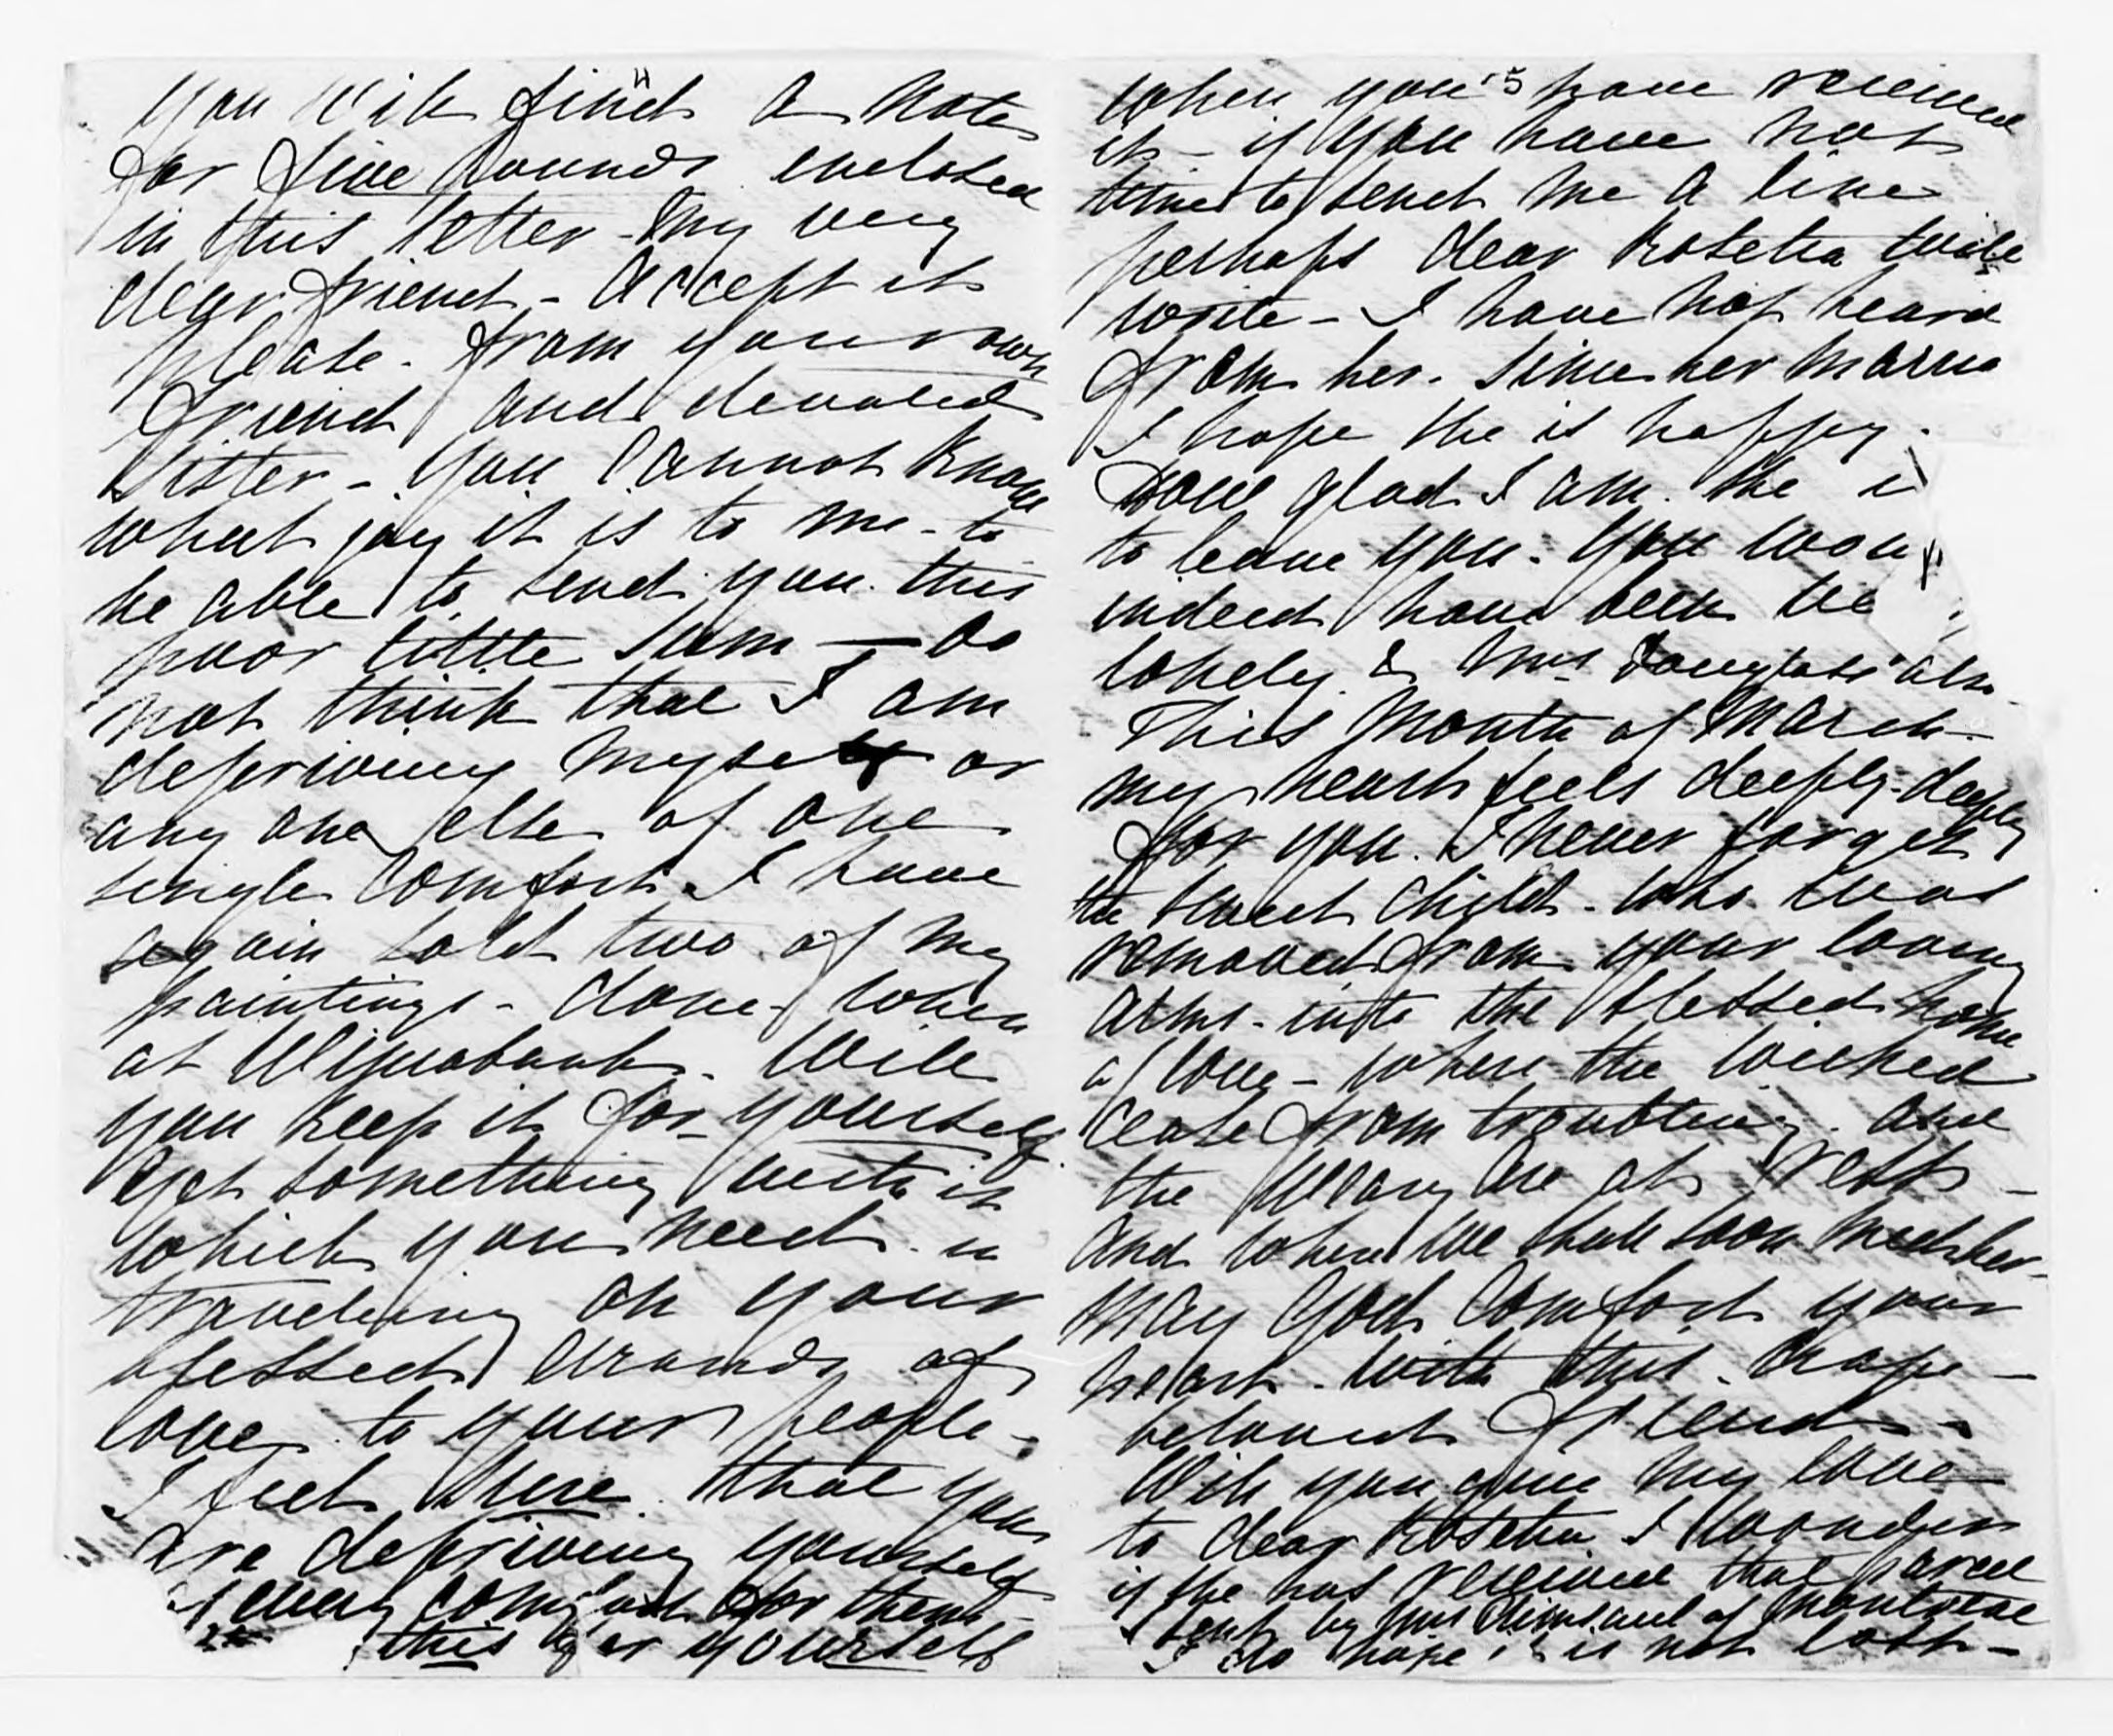 4
you will find a note
for five pounds enclosed
in this letter - My very
dear friend - accept it
please - from your own
friend and devoted
sister - You cannot know
what joy it is to me - to
be able to send you this
poor little sum — Do
not think that I am
depriving myself or
any one else of one
single comfort. I have
again sold two of my
paintings - done when
at Wincobank. Will
you keep it for yourself
get something with it
which you need in
traveling on your
blessed errands of
love to your people -
I feel sure that you
are depriving yourself
of every comfort for them -
this for yourself
5
when you have received
it - if you have not
time to send me a line
perhaps dear Rosetta will
write - I have not heard
from her. since her marri
I hope she is happy.
How glad I am she i
to leave you. You wou
indeed have been
lonely. & Mrs Douglass also
This month of March -
my heart feels deeply - deeply
for you. I never forget
the sweet child - who was
removed from your loving
arms - into the blessed home
of love - where the wicked
cease from troubling. and
the weary are at rest -
and where we shall soon meet her -
May God comfort your
heart - with this - hope -
beloved friend -
Will you give my love
to dear Rosetta I wonder
if she has received that parcel
I sent by Mrs of Montreal
I do hope it is not lost -